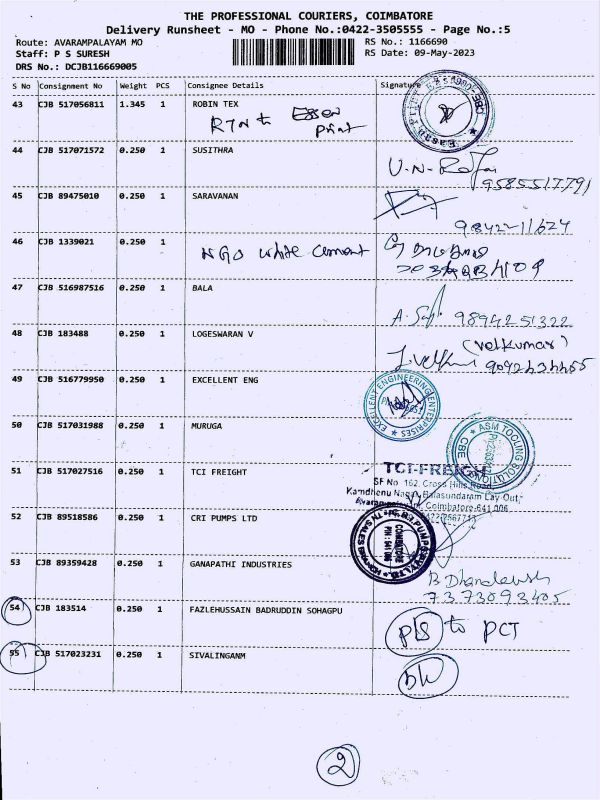 THE PROFESSIONAL COURIERS, COIMBATORE
Delivery Runsheet - MO - Phone No.:0422-3505555 - Page No.:5
Route: AVARAMPALAYAM MO
RS No.: 1166690
Staff: P S SURESH
RS Date: 09-May-2023
DRS No.: DCJB116669005
S No Consignment No Weight PCS Consignee Details Signature
43 CJB 517056811 1.345 1 ROBIN TEX
RTN to Essen
Print
44 CJB 517071572 0.250 1 SUSITHRA
9585517791
45 CJB 89475010 0.250 1 SARAVANAN
9842-11624
46 CJB 1339021 0.250 1
NGO white cement
47 CJB 516987516 0.250 1 BALA
9894251322
48 CJB 183488 0.250 1 LOGESWARAN V
(Velkumar)
49 CJB 516779950 0.250 1 EXCELLENT ENG
EXCELLENT ENGINEERING ENTERPRISES
50 CJB 517031988 0.250 1 MURUGA
ASM TOOLING SOLUTION
CBE
51 CJB 517027516 0.250 1 TCI FREIGHT
TCI-FREIGH
SF No 162, Cross Hills Road,
Kamdhenu Nagar, Balasundaram Lay Out,
Coimbatore-641 006
52 CJB 89518586 0.250 1 CRI PUMPS LTD
COIMBATORE
PIN : 641 006
53 CJB 89359428 0.250 1 GANAPATHI INDUSTRIES
7373093405
54 CJB 183514 0.250 1 FAZLEHUSSAIN BADRUDDIN SOHAGPU
to PCT
55 CJB 517023231 0.250 1 SIVALINGANM
2